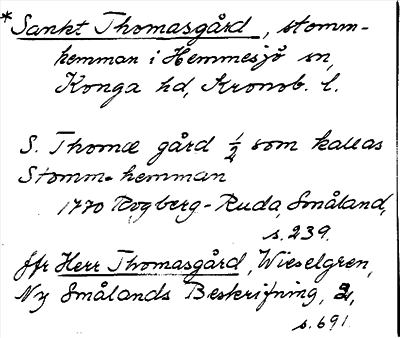 *Sankt Thomasgård, stomm-
hemman i Hemmesjö sn,
Konga hd, Kronob. l.
S. Thomæ gård ½ som kallas
Stomm-hemman
1770 Rogberg-Ruda, Småland,
s. 239.
Jfr Herr Thomasgård, Wieselgren,
Ny Smålands Beskrifning, 2,
s. 691.